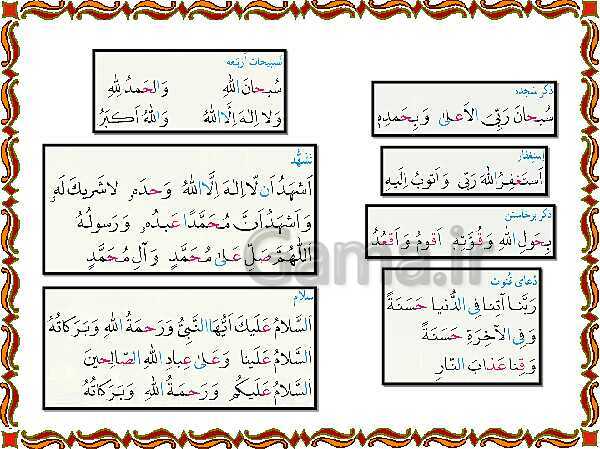 ذکر سجده
سُبحانَ رَبِّیَ الاَعلیٰ وَ بِحَمدِهٖ
استغفار
اَستَغفِرُ اللهَ رَبّی وَ اَتوبُ اِلَیهِ
ذکر برخاستن
بِحَولِ اللهِ وَ قُوَّتِهٖ اَقومُ وَ اَقعُدُ
دعای قنوت
رَبَّنا آتِنا فِی الدُّنیا حَسَنَةً
وَ فِی الآخِرَةِ حَسَنَةً
وَ قِنا عَذابَ النّارِ
تسبیحات اربعه
سُبحانَ اللهِ وَ الحَمدُ لِلّٰهِ
وَ لا اِلٰهَ اِلَّا اللهُ وَ اللهُ اَکبَرُ
تشهّد
اَشهَدُ اَن لّا اِلٰهَ اِلَّا اللهُ وَحدَهٗ لا شَریکَ لَهٗ
وَ اَشهَدُ اَنَّ مُحَمَّدًا عَبدُهٗ وَ رَسولُهٗ
اَللّٰهُمَّ صَلِّ عَلیٰ مُحَمَّدٍ وَ آلِ مُحَمَّدٍ
سلام
اَلسَّلامُ عَلَیکَ اَیُّهَا النَّبِیُّ وَ رَحمَةُ اللهِ وَ بَرَکاتُهٗ
اَلسَّلامُ عَلَینا وَ عَلیٰ عِبادِ اللهِ الصّالِحینَ
اَلسَّلامُ عَلَیکُم وَ رَحمَةُ اللهِ وَ بَرَکاتُهٗ
Gama.ir